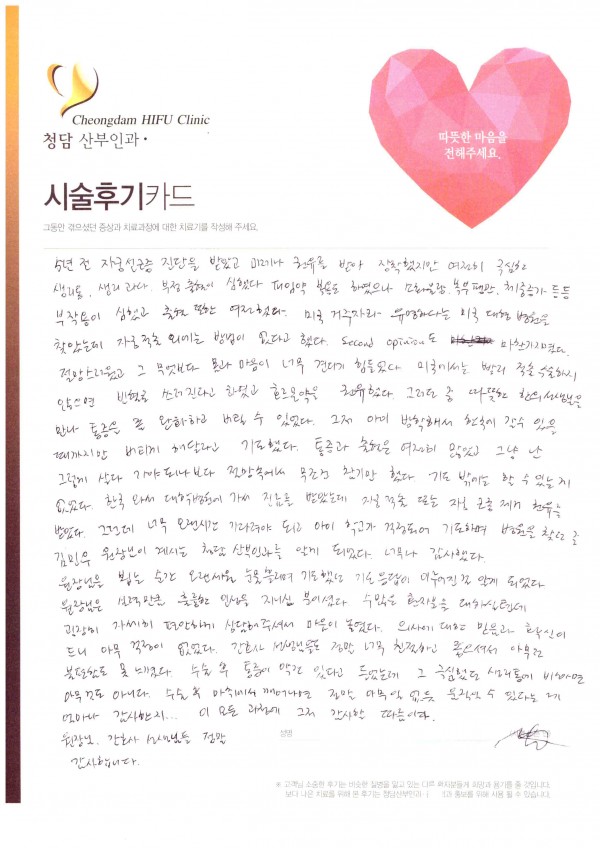 Cheongdam HIFU Clinic
청담 산부인과
따뜻한 마음을
전해주세요.
시술후기카드
그동안 겪으셨던 증상과 치료과정에 대한 치료기를 작성해 주세요.
5년 전 자궁선근증 진단을 받았고 미레나 권유를 받아 장착했지만 여전히 극심한
생리통, 생리 과다, 부정 출혈이 심했다. 피임약 복용도 하였으나 소화불량, 복부팽만, 체중증가 등등
부작용이 심했고 출혈 또한 여전했다. 미국 거주자라 유명하다는 미국 대학병원을
찾았는데 자궁적출 외에는 방법이 없다고 했다. Second opinion도 마찬가지였다.
절망스러웠고 그 무엇보다 몸과 마음이 너무 견디기 힘들었다. 미국에서는 빨리 적출수술하지
않으면 빈혈로 쓰러진다고 하였고 호르몬약을 권유했다. 그러던 중 따뜻한 한의사선생님을
만나 통증을 좀 완화하고 버틸 수 있었다. 그저 아이 방학해서 한국에 갈수 있을
때까지만 버티게 해달라고 기도했다. 통증과 출혈은 여전히 많았고 그냥 난
그렇게 살다 가야되나보다 절망속에서 무조건 참기만 했다. 기도 밖에는 할 수 있는게
없었다. 한국 와서 대학병원에 가서 진료를 받았는데 자궁적출 또는 자궁 근종제거 권유를
받았다. 그런데 너무 오랜시간 기다려야 되고 아이 학교가 걱정되어 기도하며 병원을 찾던 중
김민우 원장님이 계시는 청담 산부인과를 알게 되었다. 너무나 감사했다.
원장님을 뵙는 순간 오랜세월 눈물흘리며 기도했던 기도응답이 이루어진걸 알게 되었다
원장님은 실력만큼 훌륭한 인성을 지니신 분이셨다. 수많은 환자분을 대하실텐데
굉장히 자세히 편안하게 상담해주셔서 마음이 놓였다. 의사에 대한 믿음과 확신이
드니 아무 걱정이 없었다. 간호사 선생님들도 정말 너무 친절하고 좋으셔서 아무런
불편함도 못 느꼈다. 수술 후 통증이 약간 있다고 들었는데 그 극심했던 생리통에 비하면
아무것도 아니다. 수술 후 마취에서 깨어나면 정말 아무일 없듯 움직일 수 있다는 게
얼마나 감사한지... 이 모든 과정에 그저 감사한 마음이다.
원장님, 간호사 선생님들 정말
감사합니다.
성명
※ 고객님 소중한 후기는 비슷한 질병을 앓고 있는 다른 환자분들께 희망과 용기를 줄 것입니다.
보다 나은 치료를 위해 본 후기는 청담산부인과 홍보를 위해 사용 될 수 있습니다.